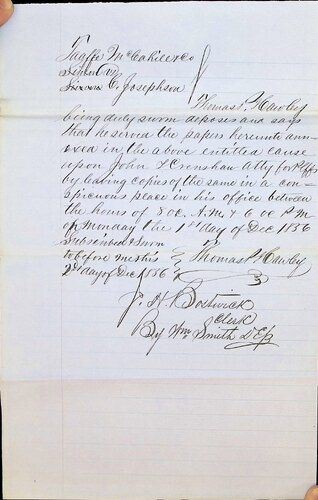 Taaffe McCahill & Co
Simon C. Josephson
Thomas P. Hawley
being duly sworn deposes and says
that he served the papers hereunto ann-
exed in the above entitled cause
upon John T Crenshaw Atty for Plffs
by leaving copies of the same in a con-
spicuous place in his office between
the hours of 8 oc. A.M. & 6 oc P.M
on Monday the 1st day of Dec 1856
Subscribed & Sworn
to before me this Thomas P. Hawley
2d day of Dec 1856
J. H. Bostwick
Clerk
By Wm Smith D Clk